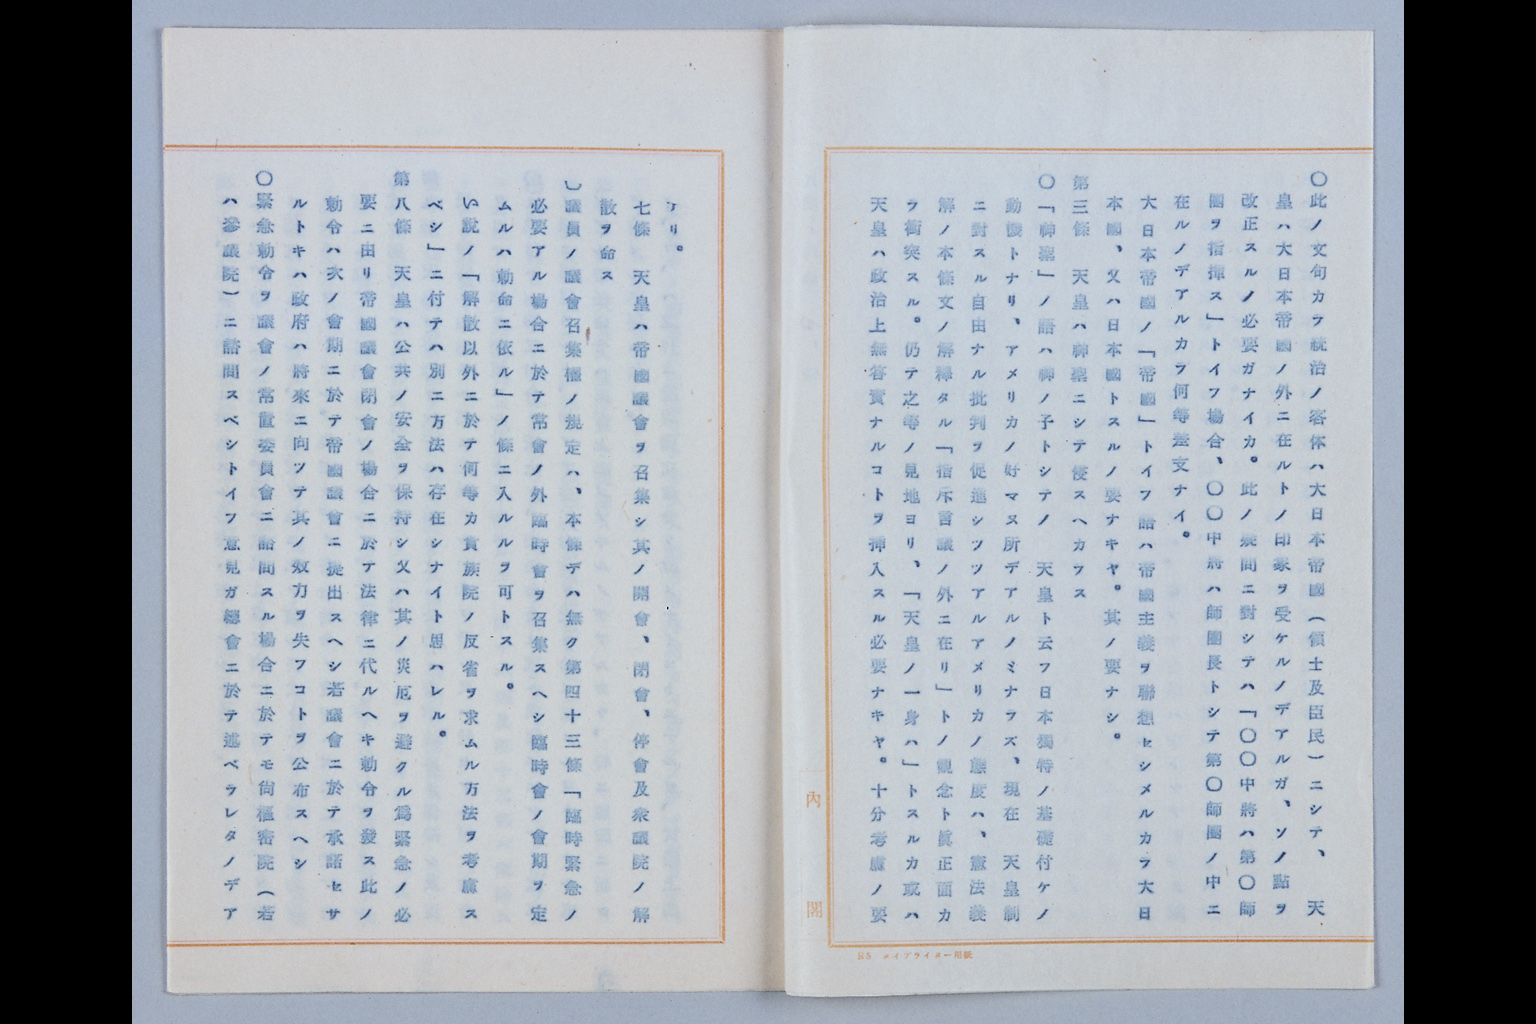 〇此ノ文句カラ統治ノ客体ハ大日本帝國(領土及臣民)ニシテ、　天
皇ハ大日本帝國ノ外ニ在ルトノ印象ヲ受ケルノデアルガ、ソノ點ヲ
改正スルノ必要ガナイカ。此ノ疑問ニ對シテハ「〇〇中將ハ第〇師
團ヲ指揮ス」トイフ場合、〇〇中將ハ師團長トシテ第〇師團ノ中ニ
在ルノデアルカラ何等差支ナイ。
大日本帝國ノ「帝國」トイフ語ハ帝國主義ヲ聯想セシメルカラ大日
本國、又ハ日本國トスルノ要ナキヤ。其ノ要ナシ。
第三條　天皇ハ神聖ニシテ侵スヘカラス
〇「神聖」ノ語ハ神ノ予トシテノ　天皇ト云フ日本獨特ノ基礎付ケノ
動懐トナリ、アメリカノ好マヌ所デアルノミナラズ、現在　天皇制
ニ對スル自由ナル批判ヲ促進シツツアルアメリカノ態度ハ、憲法義
解ノ本條文ノ解釋タル「指斥言議ノ外ニ在リ」トノ觀念ト眞正面カ
ラ衝突スル。仍テ之等ノ見地ヨリ、「天皇ノ一身ハ」トスルカ或ハ
天皇ハ政治上無答責ナルコトヲ挿入スル必要ナキヤ。十分考慮ノ要
アリ。
七條　天皇ハ帝國議會ヲ召集シ其ノ開會、閉會、停會及衆議院ノ解
散ヲ命ス
議員ノ議會召集權ノ規定ハ、本條デハ無ク第四十三條「臨時緊急ノ
必要アル場合ニ於テ常會ノ外臨時會ヲ召集スヘシ臨時會ノ會期ヲ定
ムルハ勅命ニ依ル」ノ條ニ入ルルヲ可トスル。
い說ノ「解散以外ニ於テ何等カ貴族院ノ反省ヲ求ムル方法ヲ考慮ス
ベシ」ニ付テハ別ニ方法ハ存在シナイト思ハレル。
第八條　天皇ハ公共ノ安全ヲ保持シ又ハ其ノ災厄ヲ避クル爲緊急ノ必
要ニ由リ帝國議會閉會ノ場合ニ於テ法律ニ代ルヘキ勅令ヲ發ス此ノ
勅令ハ次ノ會期ニ於テ帝國議會ニ提出スヘシ若議會ニ於テ承諾セサ
ルトキハ政府ハ將來ニ向ツテ其ノ效力ヲ失フコトヲ公布スヘシ
〇緊急勅令ヲ議會ノ常置委員會ニ諮問スル場合ニ於テモ尙樞密院(若
ハ參議院)ニ諮問スベシトイフ意見ガ總會ニ於テ述ベラレタノデア
內閣
タイプライター用紙